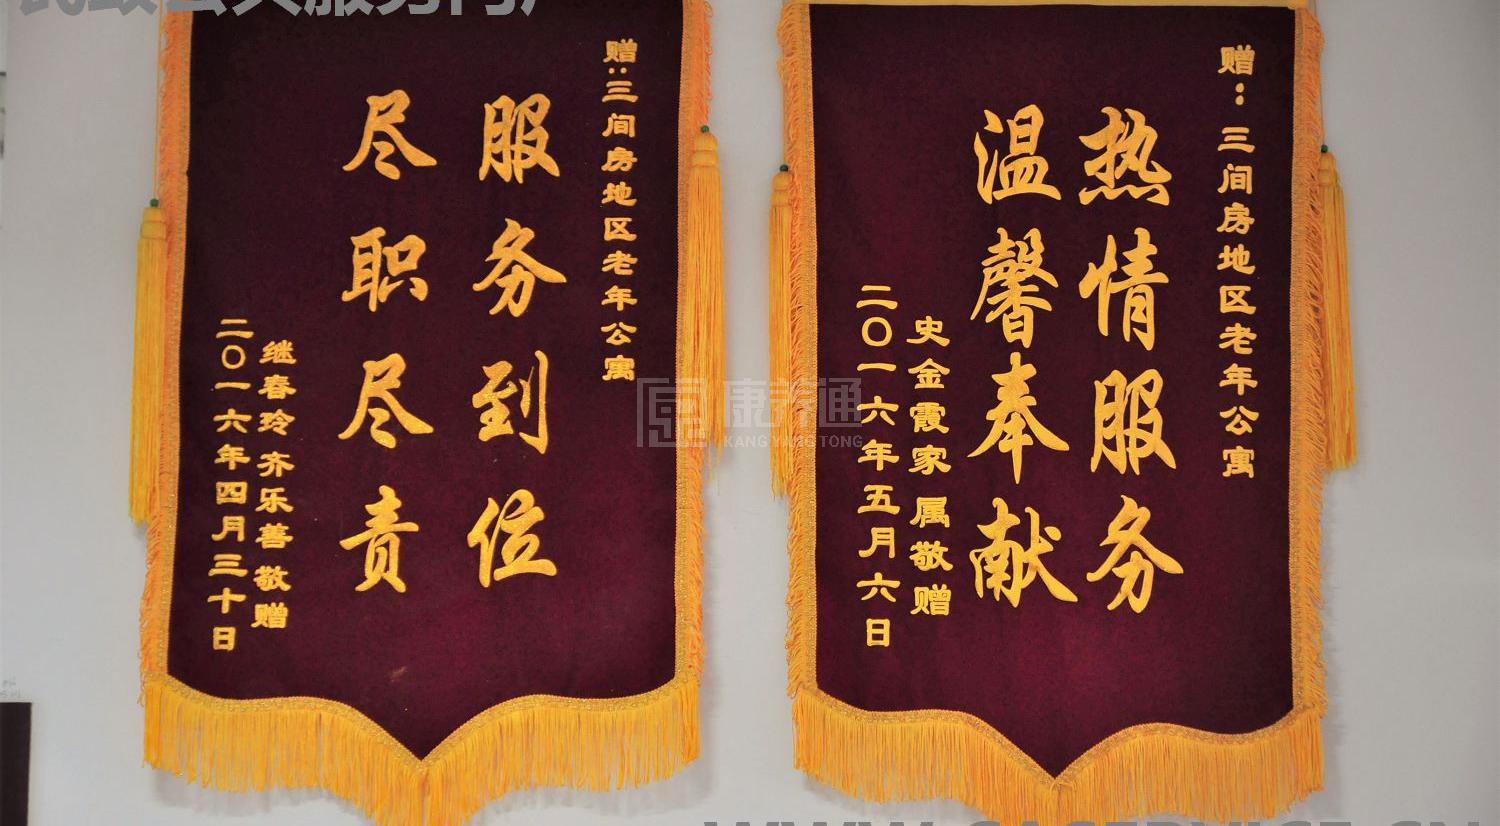 赠:三间房地区老年公寓
服务到位
尽职尽责
继春玲 齐乐善 敬赠
二〇一六年四月三十日
赠:三间房地区老年公寓
热情服务
温馨奉献
史金霞家属敬赠
二〇一六年五月六日
康养通
KANG YANG TONG